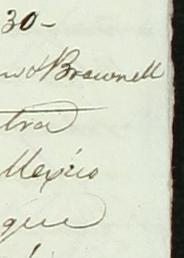 30-
Brownell
tra
Mexico
que